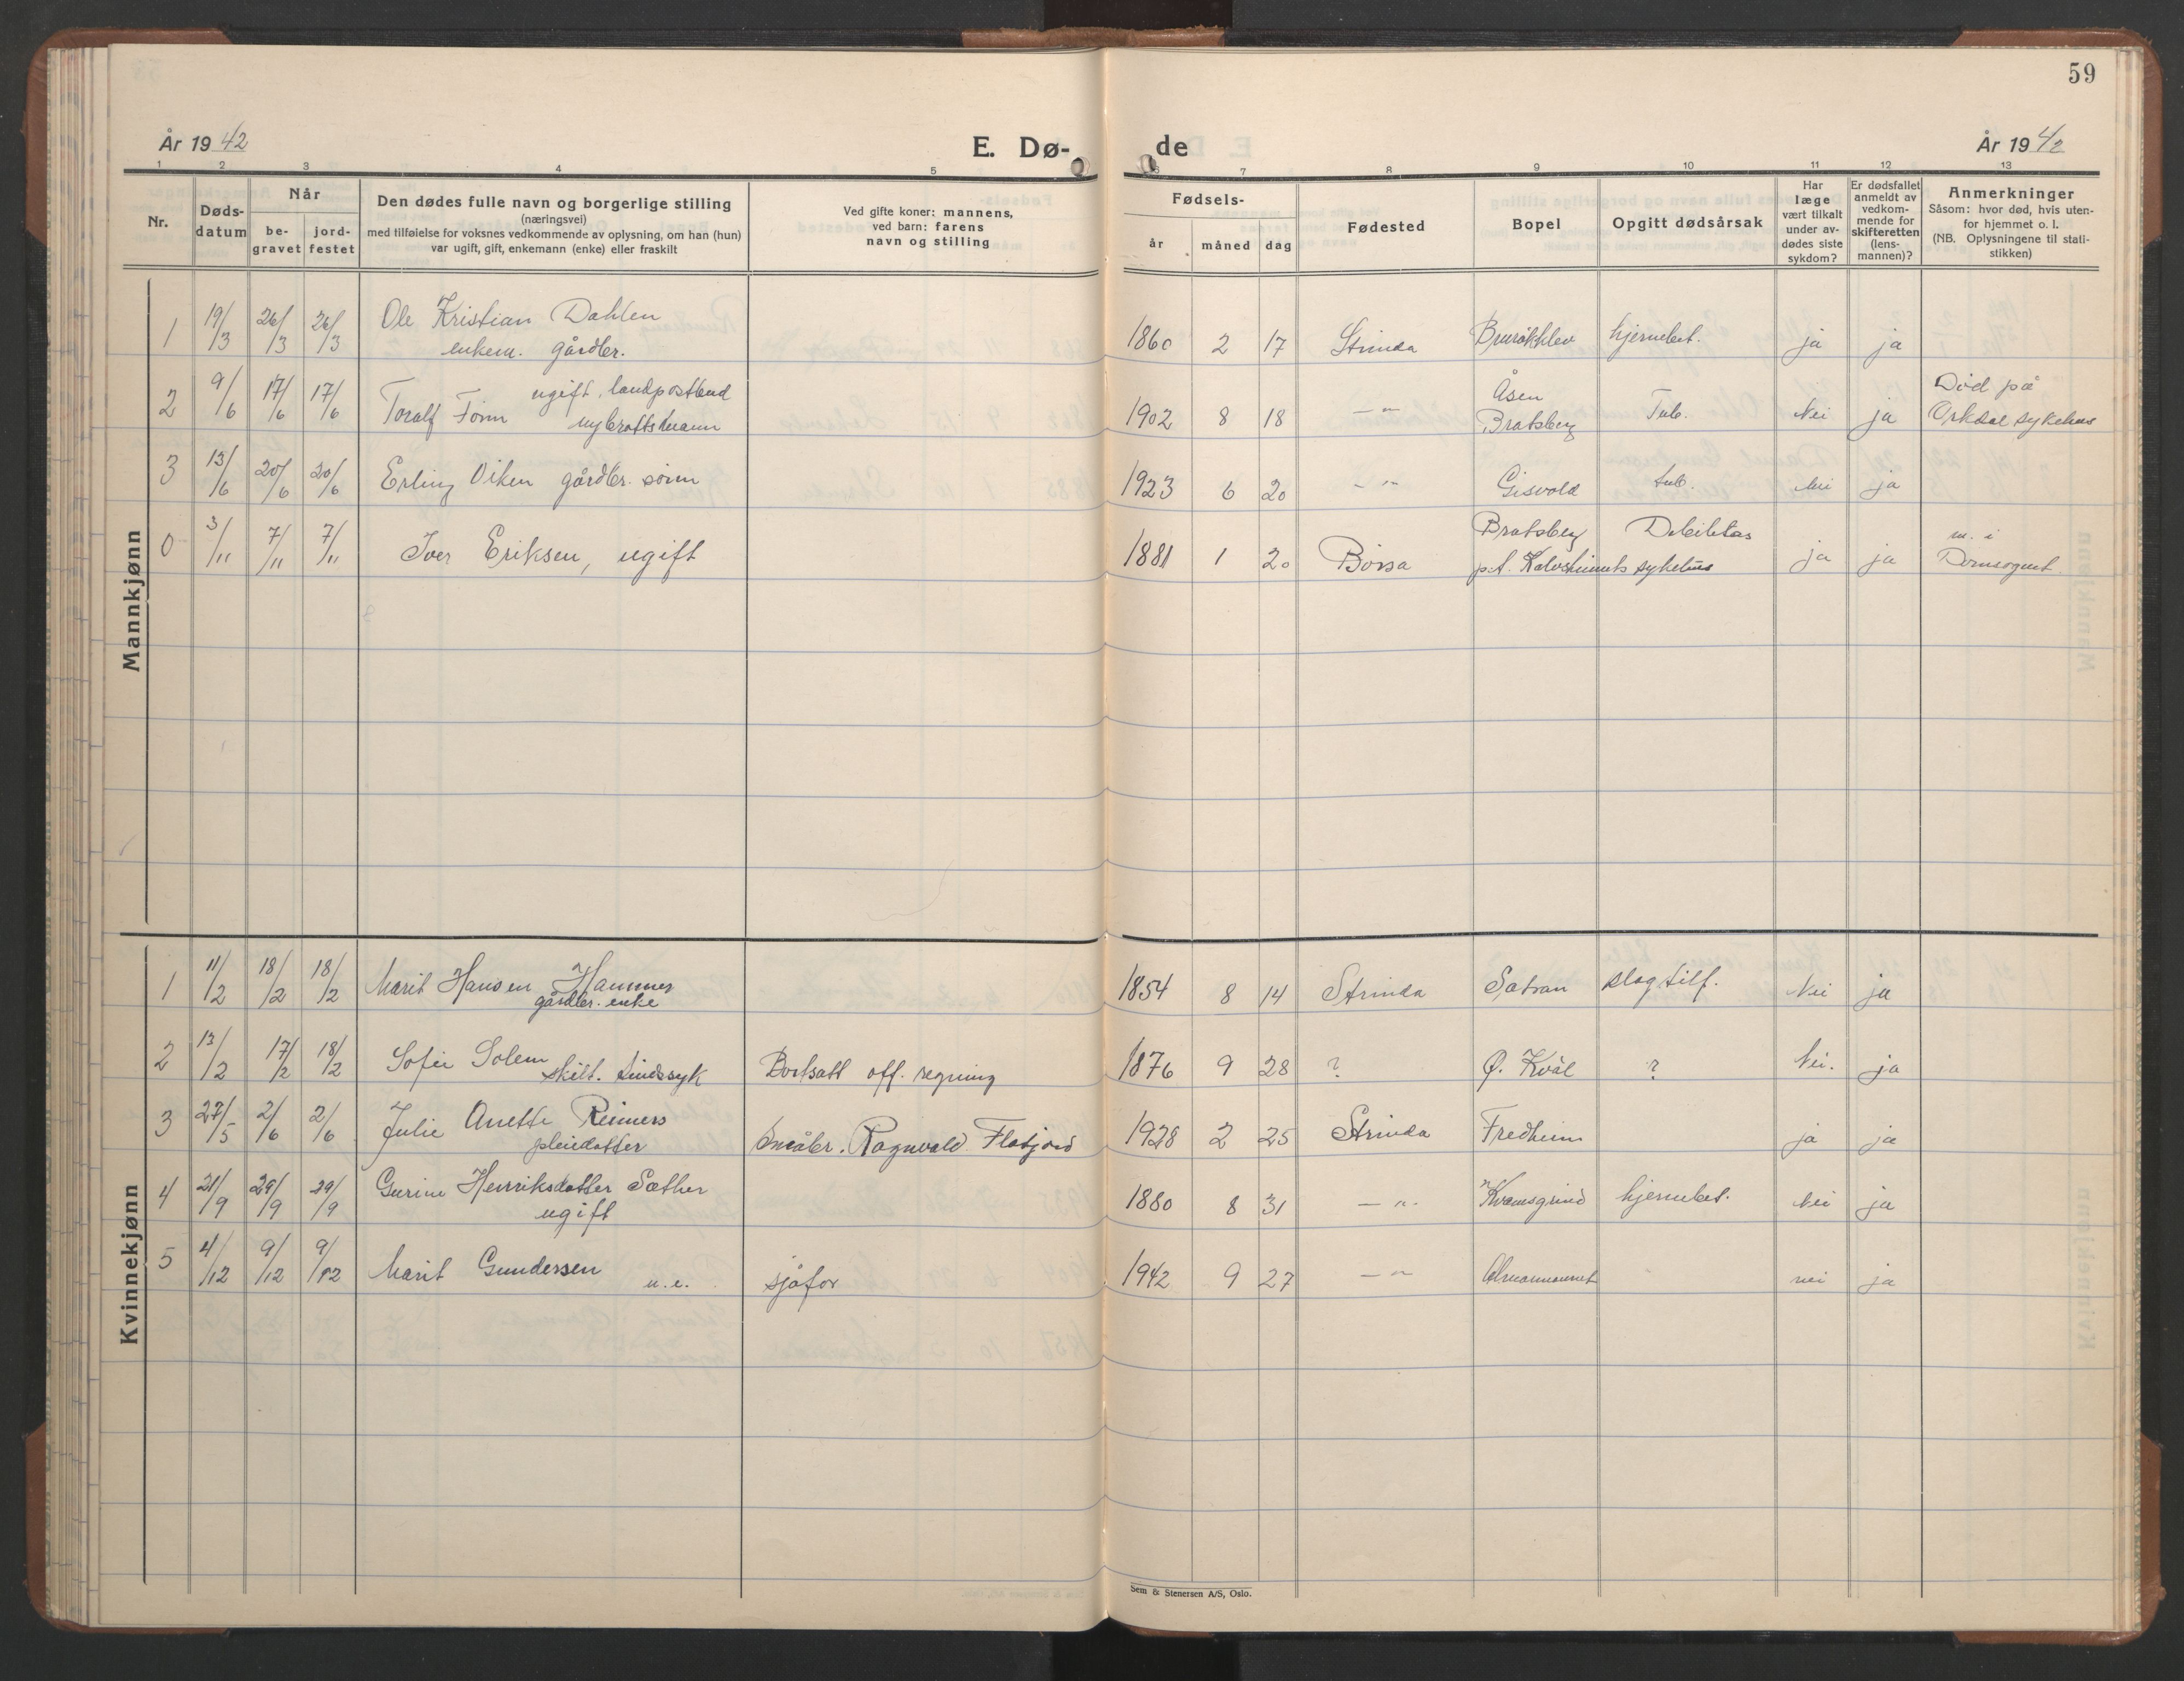 59
År 1942 E. Dø- de År 1942
1 2 3 4 5 6 7 8 9 10 11 12 13
Nr.
Døds-
datum
Når
be-
gravet
jord-
festet
Den dødes fulle navn og borgerlige stilling
(næringsvei)
med tilføielse for voksnes vedkommende av oplysning, om han (hun)
var ugift, gift, enkemann (enke) eller fraskilt
Ved gifte koner: mannens,
ved barn: farens
navn og stilling
Fødsels-
år måned dag
Fødested
Bopel
Opgitt dødsårsak
Har
læge
vært tilkalt
under av-
dødes siste
sykdom?
Er dødsfallet
anmeldt av
vedkom-
mende for
skifteretten
(lens-
mannen)?
Anmerkninger
Såsom: hvor død, hvis uten-
for hjemmet o. l.
(NB. Oplysningene til stati-
stikken)
Mannkjønn
1 19/3 26/3 26/3 Ole Kristian Dahlen
enkem. gårdbr.
1860 2 17 Strinda hjernebet. ja ja
2 9/6 17/6 17/6 Toralf Fonn ugift, landpostbud
nybrottsmann
1902 8 18 -"- Åsen
Bratsberg Tub. Nei ja Død på
Orkdal sykehus
3 13/6 20/6 20/6 Erling Viken gårdbr. sønn
1923 6 20 -"- Gisvold tub. Nei ja
0 3/11 7/11 7/11 Iver Eriksen, ugift
1881 1 20 Börsa Bratsberg
p.t. Kalvskinnets sykehus Debilitas ja ja m. i
Domsognet.
Kvinnekjønn
1 11/2 18/2 18/2 Marit Hansen Hammer
gårdbr. enke
1854 8 14 Strinda Satran slagtilf. Nei ja
2 13/2 17/2 18/2 Sofie Solem
skilt. sindssyk Bortsatt off. regning
1876 9 28 ? Ø. Kvål ? Nei. ja
3 27/5 2/6 2/6 Julie Anette Reimers
pleiedatter Småbr. Ragnvald Flatjord
1928 2 25 Strinda Fredheim ja ja
4 21/9 29/9 29/9 Gurine Henriksdatter Sæther
ugift
1880 8 31 -"- Kvamsgrind hjernebet. Nei ja
5 4/12 9/12 9/12 Marit Gundersen u.e. sjåfør
1942 9 27 -"- nei ja
Sem & Stenersen A/S, Oslo.